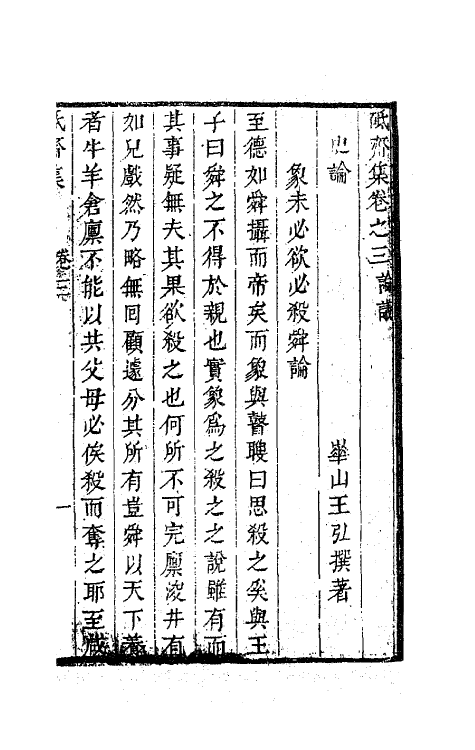 砥齋集卷之三 論議
史論
華山王弘撰著
象未必欲必殺舜論
至德如舜攝而帝矣而象與瞽瞍曰思殺之奚與王
子曰舜之不得於親也實象爲之殺之之說雖有而
其事疑無夫其果欲殺之也何所不可完廪浚井有
如兒戲然乃略無回顧遽分其所有豈舜以天下養
者牛羊倉廪不能以共父母必俟殺而奪之耶至
砥齋集 卷之三 一